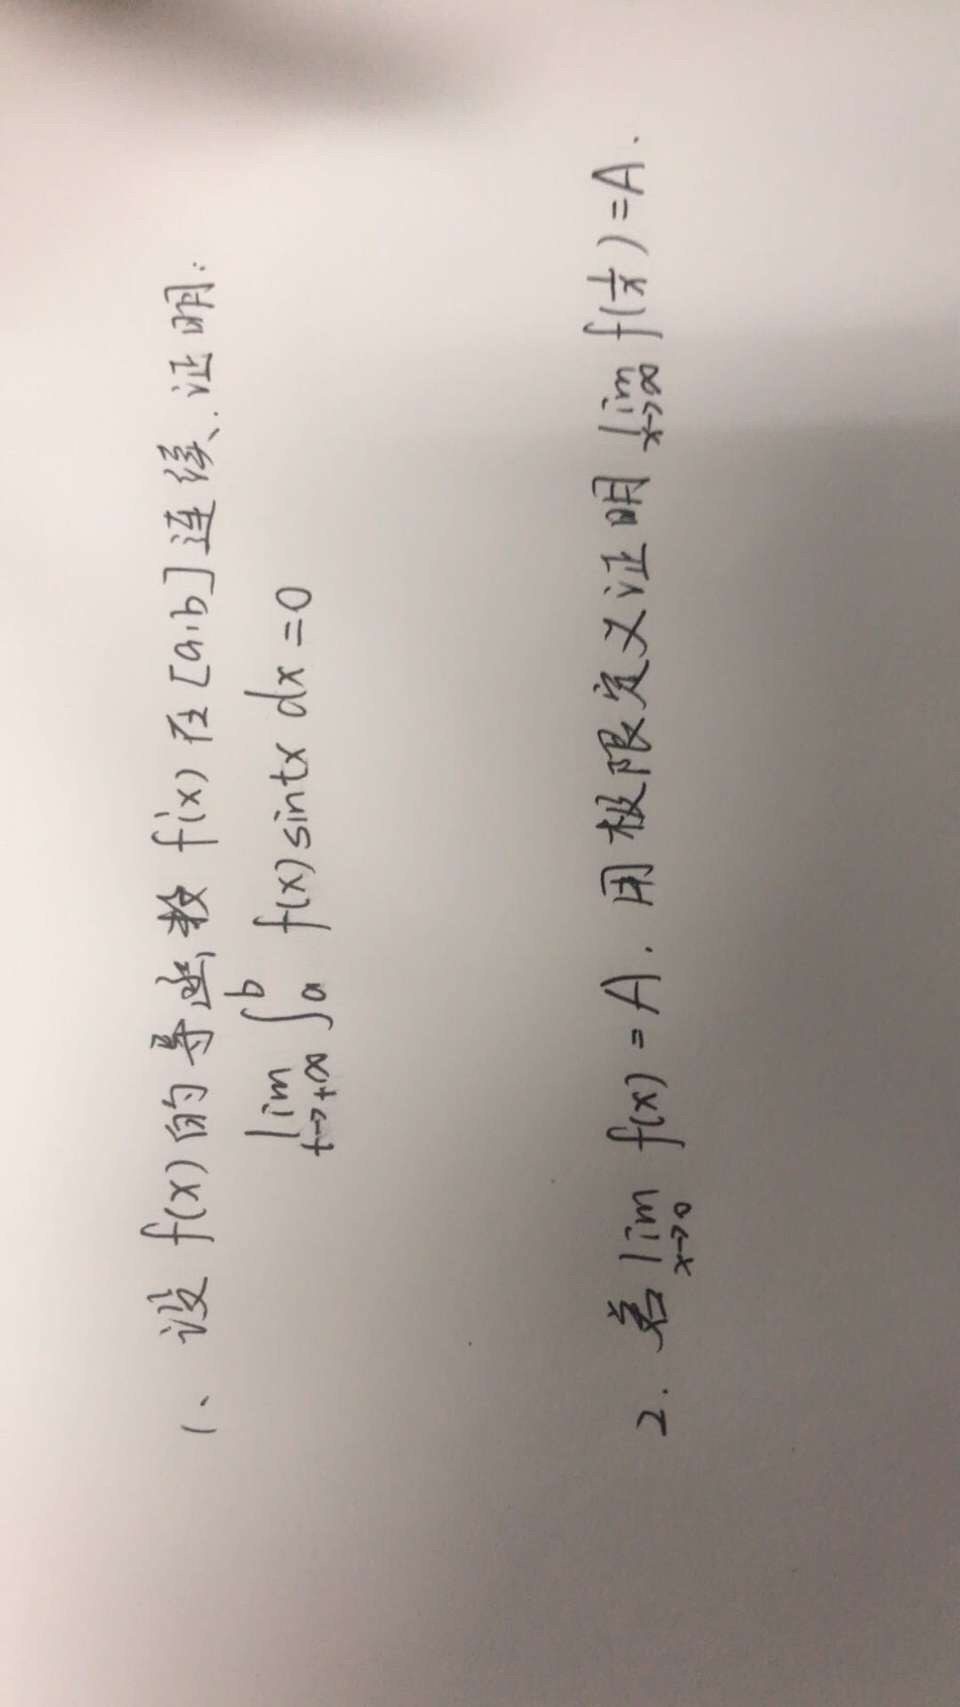 1、设 f(x) 的导函数 f'(x) 在 [a,b] 连续、证明:
lim t→+∞ ∫ₐᵇ f(x) sintx dx = 0
2. 若 lim x→0 f(x) = A. 用极限定义证明 lim x→∞ f(1/x) = A.